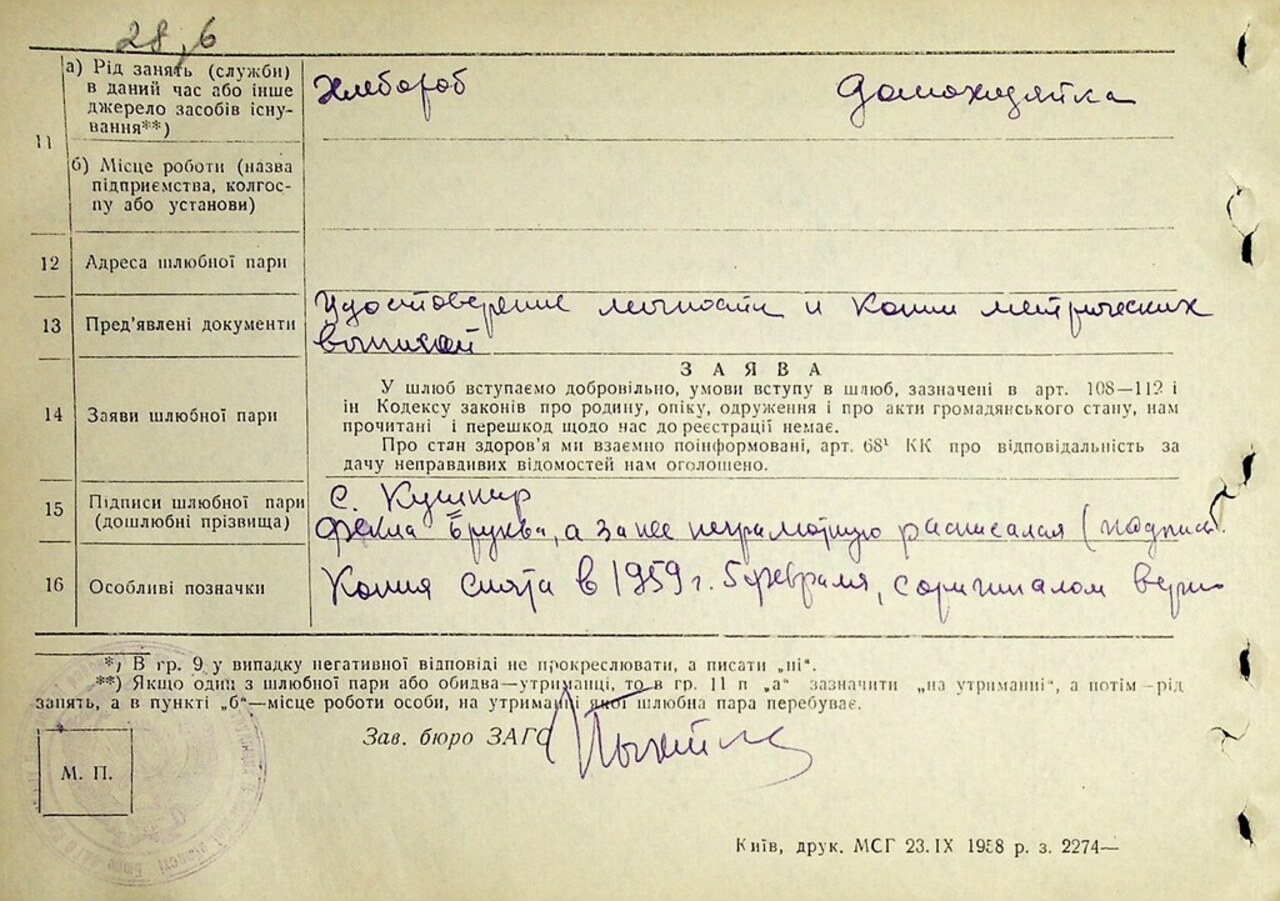 28,6
11
а) Рід занять (служби)
в даний час або інше
джерело засобів існу-
вання**)
Хлебороб Домохозяйка
б) Місце роботи (назва
підприємства, колгос-
пу або установи)
12 Адреса шлюбної пари
13 Пред'явлені документи
Удостоверение личности и копии метрических
выписей
14 Заяви шлюбної пари
ЗАЯВА
У шлюб вступаємо добровільно, умови вступу в шлюб, зазначені в арт. 108—112 і
ін Кодексу законів про родину, опіку, одруження і про акти громадянського стану, нам
прочитані і перешкод щодо нас до реєстрації немає.
Про стан здоров'я ми взаємно поінформовані, арт. 68¹ КК про відповідальність за
дачу неправдивих відомостей нам оголошено.
15 Підписи шлюбної пари
(дошлюбні прізвища)
С. Кушнир
Фекла Бруква, а за нее неграмотную расписалая (подпись
16 Особливі позначки
Копия снята в 1959 г. 5 февраля, с оригиналом верно
*) В гр. 9 у випадку негативної відповіді не прокреслювати, а писати „ні“.
**) Якщо один з шлюбної пари або обидва—утриманці, то в гр. 11 п „а“ зазначити „на утриманні“, а потім—рід
занять, а в пункті „б“—місце роботи особи, на утриманці якої шлюбна пара перебуває.
Зав. бюро ЗАГС
М. П.
Київ, друк. МСГ 23.IX 1958 р. з. 2274—